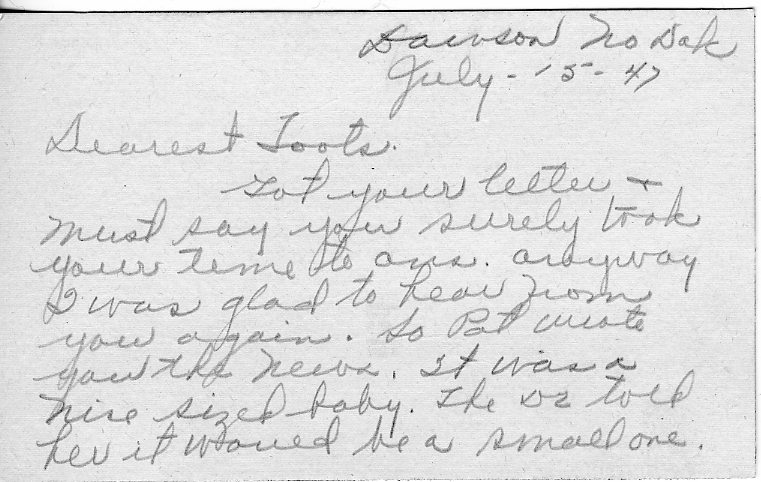 Dawson No Dak
July - 15 - 47
Dearest Toots.
Got your letter +
must say you surely took
your time to ans. anyway
I was glad to hear from
you again. So Pat wrote
you the news. It was a
nice sized baby. The Dr told
her it would be a small one.